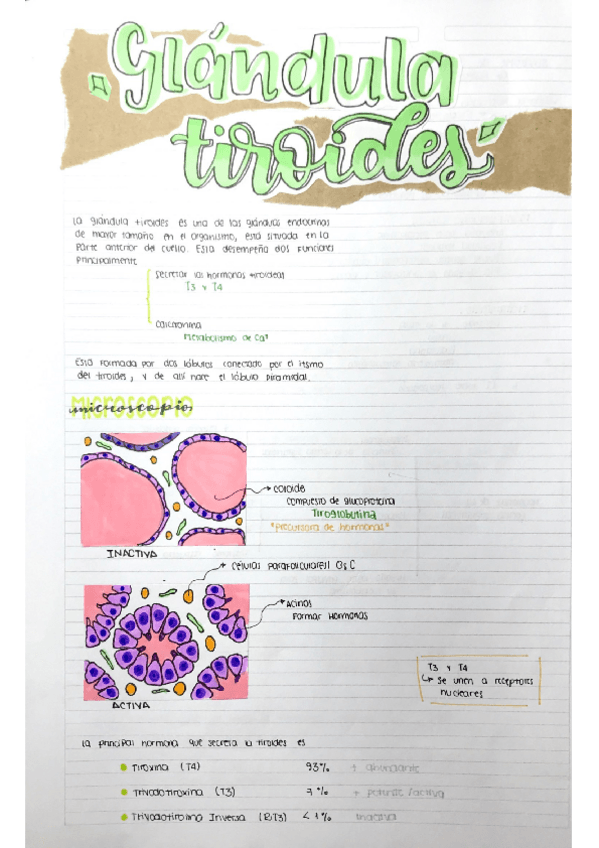 Glándula
tiroides
La glándula tiroides es una de las glándulas endocrinas
de mayor tamaño en el organismo, está situada en la
parte anterior del cuello. Esta desempeña dos funciones
principalmente
Secretar las hormonas tiroideas
T3 y T4
Calcitonina
Metabolismo de Ca+
Esta formada por dos lóbulos conectado por el itsmo
del tiroides, y de ahí nace el lóbulo piramidal.
MICROSCOPIO
microscopio
coloide
compuesto de glucoproteina
Tiroglobulina
"Precursora de hormonas"
INACTIVA
Células parafoliculares || Cs C
Acinos
Formar Hormonas
ACTIVA
T3 y T4
↳ Se unen a receptores
nucleares
La principal hormona que secreta la tiroides es
Tiroxina (T4) 93% + abundante
Triyodotiroxina (T3) 7% + potente /activa
Triyodotironina Inversa (RT3) <1% Inactiva